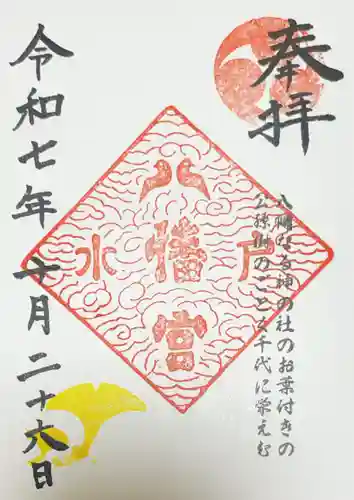 奉拝
八幡なる神の社のお葉付きの
公孫樹のごとく千代に栄えむ
八幡宮
水戸
令和七年十月二十六日